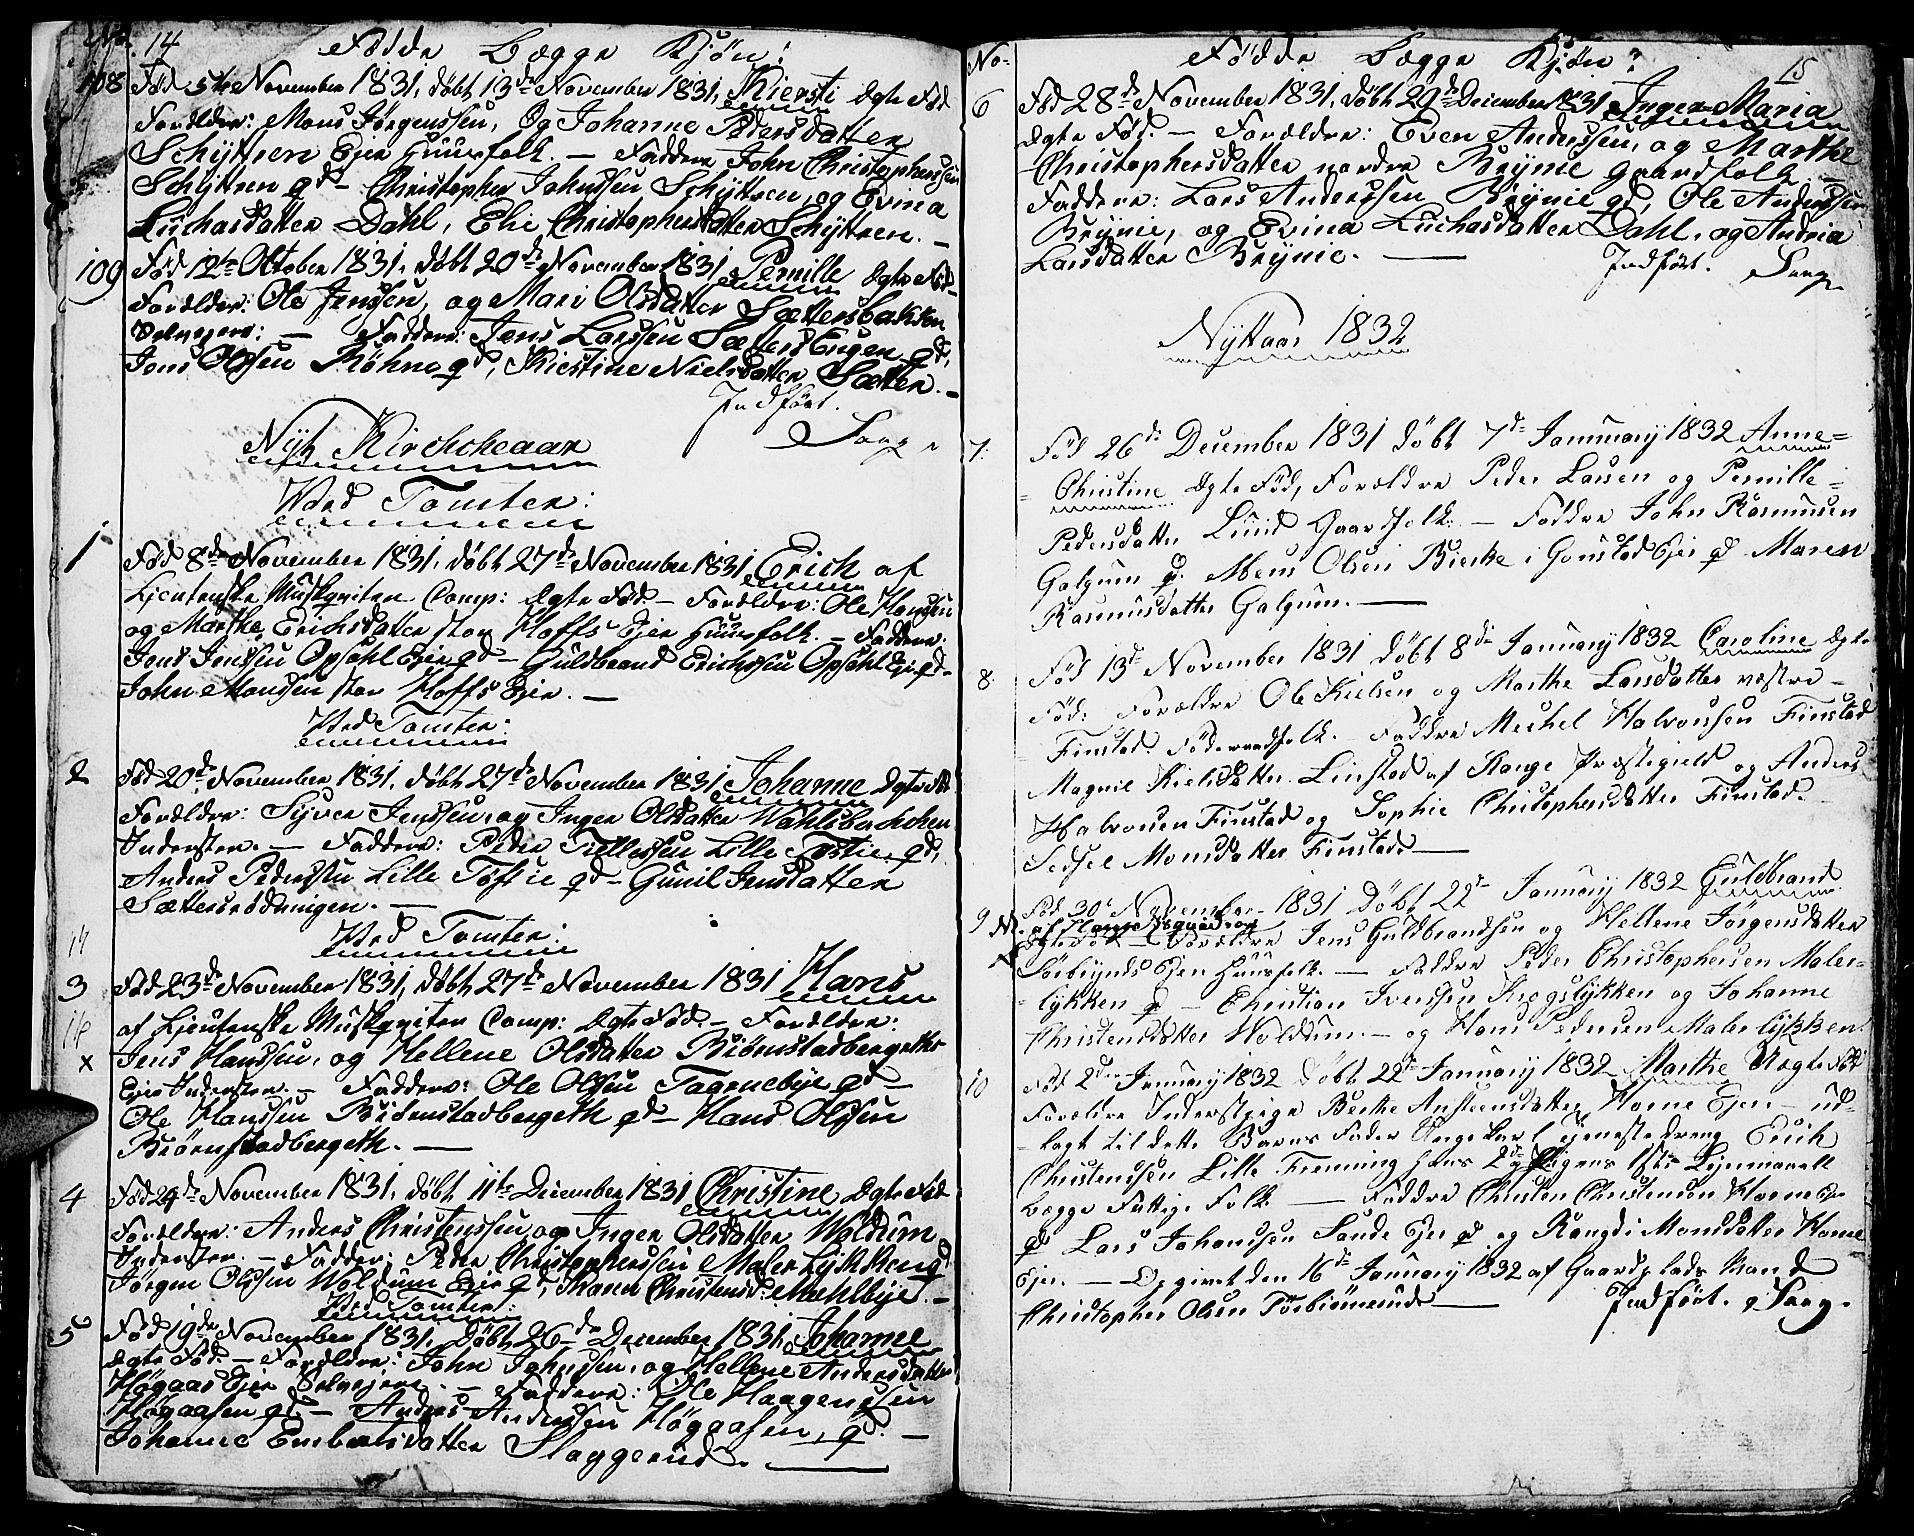 No. 14 Fødde Begge Kjøn:
108 Fød 5te November 1831, døbt 13de November 1831, Kiersti Ægte Fød
Forældre: Mons Jørgenssen, Og Johanne Pedersdatter
Schyttren Eje Huusfolk. — Faddere John Christophersen
Schyttren gd — Christopher Johnssen Schyttren, og Evina
Luchasdatter Dahl, Eli Christophersdatter Schyttren. —
109 Fød 12te Oktober 1831, døbt 20de November 1831 Pernille Ægte Fød —
Forældre: Ole Jenssen, og Mari Olsdatter Sættersbakken
Selvejere: — Faddere: Jens Larssen Sætters Engen gd,
Jens Olssen Røhne gd, Kiestine Nielsdatter Sætter. —
Indført.
Nyt Kirchcheaar
Ved Tomter:
1 Fød 8de November 1831, døbt 27de November 1831 Erich af
Ljøutenske Muskqviter Comp: Ægte Fød — Forældre: Ole Hanssen
og Marthe Erichsdatter stor Hoffs Ejer Huusfolk. — Faddere:
Jens Jenssen Opsahl Ejer gd — Guldbrand Erichssen Opsahl Eje gd —
John Monssen stor Hoffs Eje. —
Ved Tomter:
2 Fød 20de November 1831, døbt 27de November 1831 Johanne Ægte Fød
Forældre: Syver Jenssen, og Inger Olsdatter Wahlsbachchen
Inderster. — Faddere: Peder Tollefssen Lille Toftie gd,
Anders Pederssen Lille Toftie gd — Gunil Jensdatter
Sættersrødningen. —
Ved Tomter:
3 Fød 23de November 1831, døbt 27de November 1831 Hans
af Ljeutenske Muskqviter Comp: Ægte Fød. — Forældre:
x Jens Hanssen, og Hellene Olsdatter Biørnstadbergeths
Ejer Inderster. — Faddere: Ole Olssen Tagenebye gd —
Ole Hanssen Biørnstadbergeth gd — Hans Olssen
Biørnstadbergeth. —
4 Fød 24de November 1831, døbt 11te December 1831 Christine Ægte Fød
Forældre: Anders Christenssen, og Inger Olsdatter Woldum
Inderster. — Faddere: Peder Christopherssen Maler Lykken gd
Jørgen Olssen Woldum Eje gd, Maren Christensd: Mæhlbye. —
Ved Tomter:
5 Fød 19de November 1831, Døbt 26de December 1831, Johanne
Ægte Fød. — Forældre: John Johnssen, og Hellene Andersdatter
Høgaas Ejer Selvejere. — Faddere: Ole Haagenssen
Høgaasen gd. — Anders Anderssen Høgaasen, gd. —
Johanne Embretsdatter Slaggerud. —
No. Fødde Begge Kjøn: 15
6 Fød 28de November 1831, døbt 29de December 1831 Inger Maria
Ægte Fød. — Forældre: Even Anderssen, og Marthe
Christophersdatter nordre Brynie Gaardfolk. —
Faddere: Lars Anderssen Brynie gd, Ole Anderssen
Brynie, og Evina Luchasdatter Dahl, og Andria
Larsdatter Brynie. —
Indført.
Nyttaar 1832
7. Fød 26de December 1831 Døbt 7de Januuary 1832 Anne=
= Christine Ægte Fød, Forældre Peder Larsen og Pernille=
Pedersdatter Lund Gaardfolk: — Faddre John Rasmusen
Galgum g. Mons Olsen Bierke i Gonstad Ejer gd Maren
Rasmusdatter Galgum. —
8. Fød 13de November 1831 døbt 8de January 1832 Caroline Ægte
Fød: Forældre Ole Kielsen og Marthe Larsdatter vestre —
Finstad. Føderaadsfolk. — Faddre Mechel Halvorssen Finstad
Magnil Kielsdatter Linstad af Stange Præstegield og Anders
Halvorsen Finstad og Sophie Christophersdatter Finstad.
Sedsel Monsdatter Finstad —
9 Fød 30te November 1831 Døbt 22de January 1832 Guldbrand
Ægte Fød — Forældre Jens Guldbrandsen og Hellene Jørgensdatter
Sørbrynds Ejer Huusfolk. — Faddre Peder Christophersen Maler=
= lykken g — Christian Iverssen Krogslykken og Johanne
Christensdatter Woldum. — og Hans Pedersen Maler lykken.
10 Fød 2den January 1832 Døbt 22de January 1832 Marthe Uægte Fød
Forældre Inderstpige Berthe Anstensdatter Horne Ejer — ud=
= lagt til dette Barns Fader Ungekarl Tjenestedreng Erich
Christenssen Lille Fremming hans 2de og Pigens 1ste Lejermaall
begge Fattige Folk — Faddre Christen Christensen Horne Eje
gd Lars Johansen Sande Ejer gd og Rangdi Monsdatter Horne
Ejer. — Opgivet den 16de January 1832 af Gaardplads Mand
Christopher Olsen Torbiørnrud — Indført.